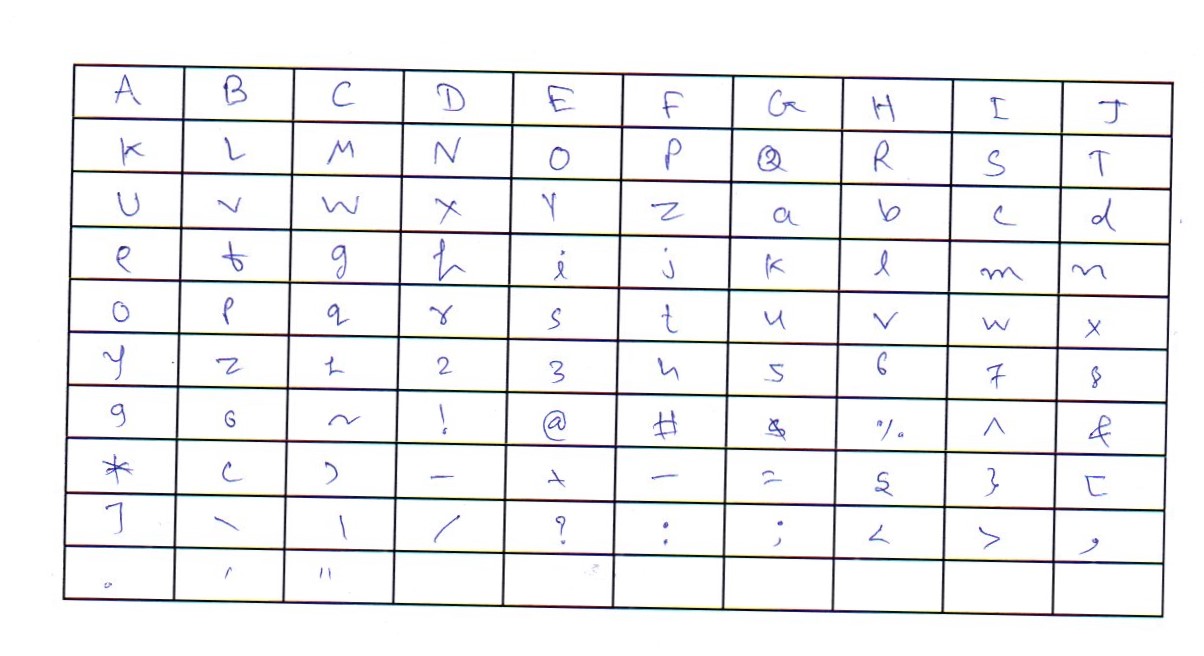 A B C D E F G H I J
K L M N O P Q R S T
U V W X Y Z a b c d
e f g h i j k l m n
o p q r s t u v w x
y z 1 2 3 4 5 6 7 8
9 0 ~ ! @ # $ % ^ &
* ( ) _ + - = { } [
] \ | / ? : ; < > ,
. ' "